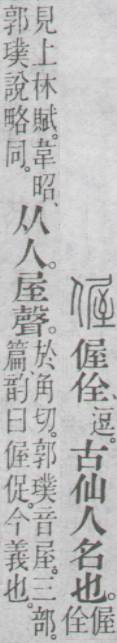 偓 偓佺、逗。古仙人名也。偓佺
見上林賦。韋昭、郭璞說略同。从人。屋聲。於角切。郭璞音屋。三部。篇韵曰偓促。今義也。